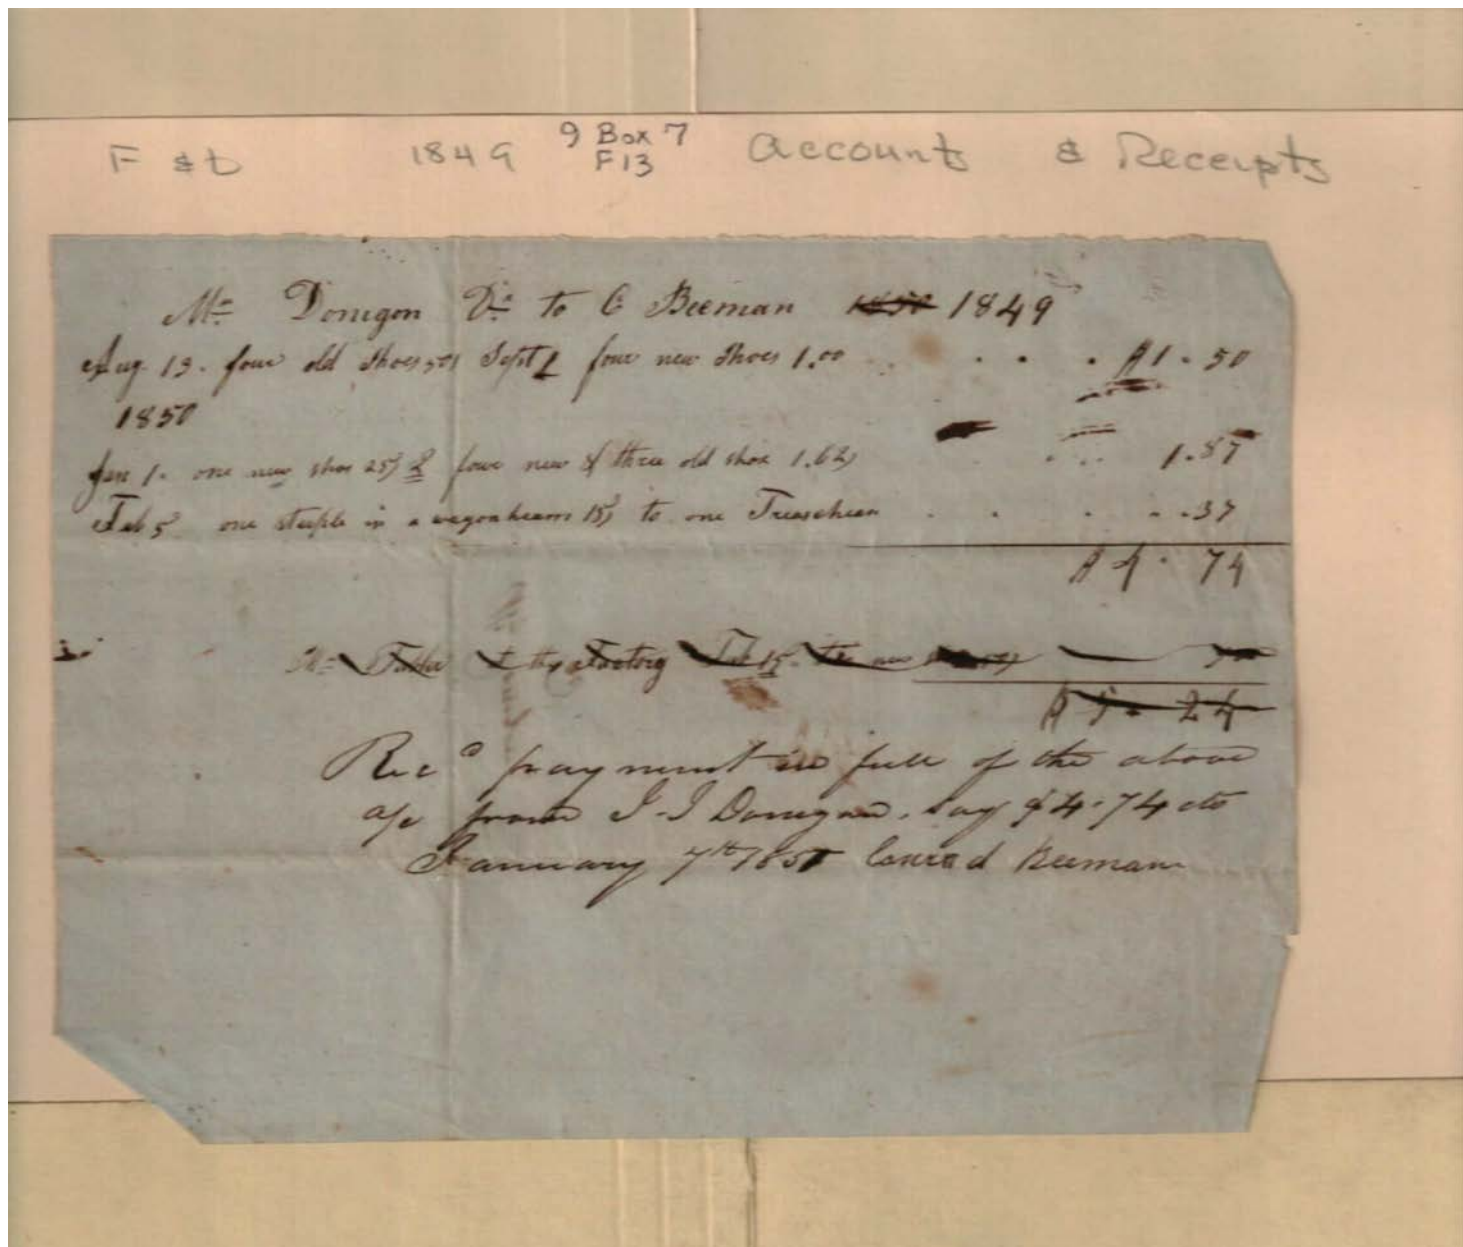 F & D 1849 9 Box 7 Accounts & Receipts
F13
Mr Donegon Dr to C Beeman 1850 1849
Aug 13. four old Shoes 50) Sept 1 four new Shoes 1.00 . . . $1.50
1850
Jan 1. one new shoe 25) 2 four new & three old shoe 1.62) . . . 1.87
Feb 5 one steeple in a wagonbeam 15) to one . . . . .37
$4.74
Mr the Factory Feb 15. to new
$5.24
Recd payment in full of the above
a/c from J-J Donegan, say $4.74 cts
January 7th 185 Conrad Beeman